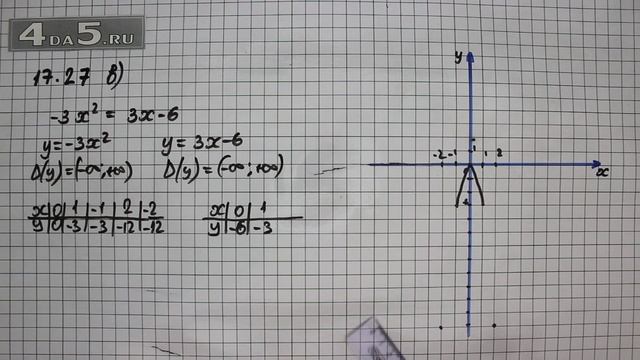 4DA5.RU
17.27 в)
-3x² = 3x-6
y=-3x² y = 3x-6
D(y)=(-∞;+∞) D(y)=(-∞;+∞)
x 0 1 -1 2 -2
y 0 -3 -3 -12 -12
x 0 1
y -6 -3
y
-2 -1 1 1 2
x